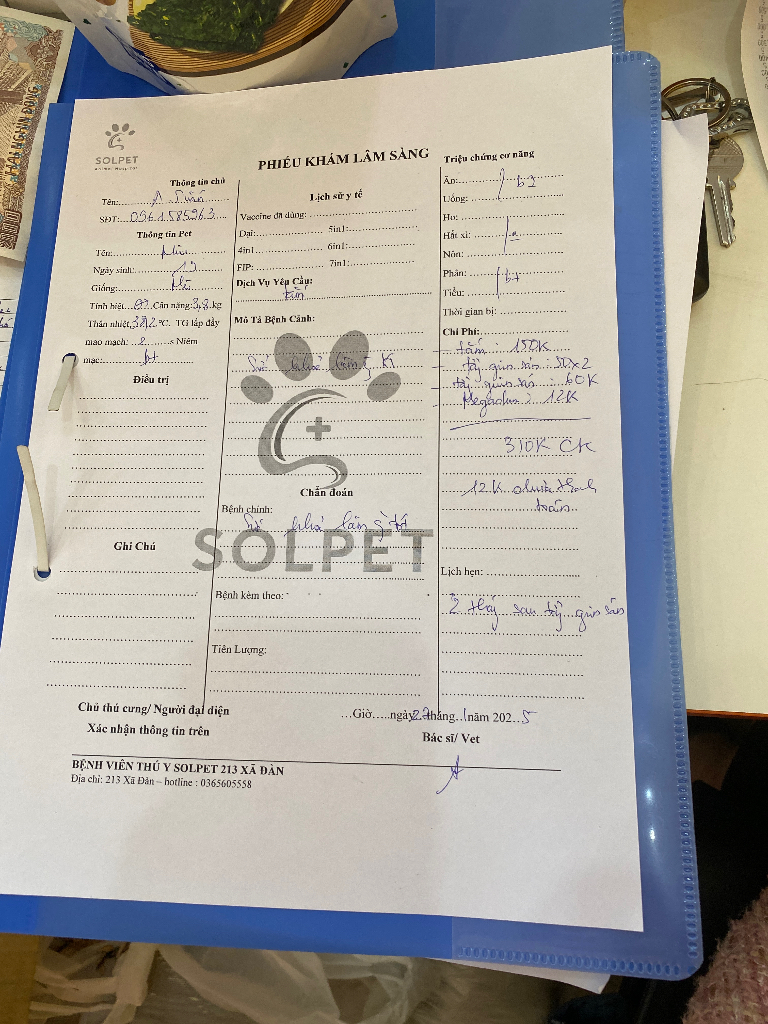 HAI NGHÌN ĐỒNG
SOLPET
ANIMAL HOSPITAL
PHIẾU KHÁM LÂM SÀNG
Thông tin chủ
Tên: A
SĐT: 0961585963
Thông tin Pet
Tên:
Ngày sinh:
Giống:
Tính biệt Cân nặng: 3,8 kg
Thân nhiệt, 38,2 °C. TG lấp đầy
mao mạch: 2 s Niêm
mạc: bt
Điều trị
Ghi Chú
Lịch sử y tế
Vaccine đã dùng:
Dại: 5in1:
4in1 6in1:
FIP: 7in1:
Dịch Vụ Yêu Cầu:
tắm
Mô Tả Bệnh Cảnh:
Chẩn đoán
Bệnh chính:
SOLPET
Bệnh kèm theo:
Tiên Lượng:
Triệu chứng cơ năng
Ăn: bt
Uống:
Ho:
Hắt xì:
Nôn:
Phân: bt
Tiểu:
Thời gian bị:
Chi Phí:
- tắm: 150K
- tẩy giun sán: 50x2
- tẩy giun sán: 60K
12K
310K CK
12K chưa thanh
toán
Lịch hẹn:
2 tháng sau tẩy giun sán
Chủ thú cưng/ Người đại diện
Xác nhận thông tin trên
Giờ ngày 27 tháng 1 năm 2025
Bác sĩ/ Vet
BỆNH VIỆN THÚ Y SOLPET 213 XÃ ĐÀN
Địa chỉ: 213 Xã Đàn – hotline : 0365605558